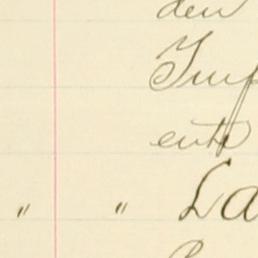 den
Imp
ente
" " La